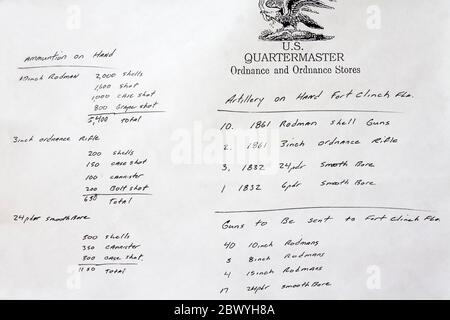 U.S.
QUARTERMASTER
Ordnance and Ordnance Stores
Ammunition on Hand
10inch Rodman 2,000 shells
1,600 shot
1,000 case shot
800 Grape shot
5,400 Total
3inch ordnance Rifle
200 shells
150 case shot
100 cannister
200 Bolt shot
650 Total
24pdr smooth Bore
500 shells
350 cannister
300 case shot
1150 Total
Artillery on Hand Fort Clinch Fla.
10. 1861 Rodman shell Guns
2. 1861 3inch ordnance Rifle
3, 1832 24pdr smooth Bore
1 1832 6pdr smooth Bore
Guns to Be sent to Fort Clinch Fla.
40 10inch Rodmans
5 8inch Rodmans
4 15inch Rodmans
17 24pdr smooth Bore
alamy
www.alamy.com
2BWYH8A